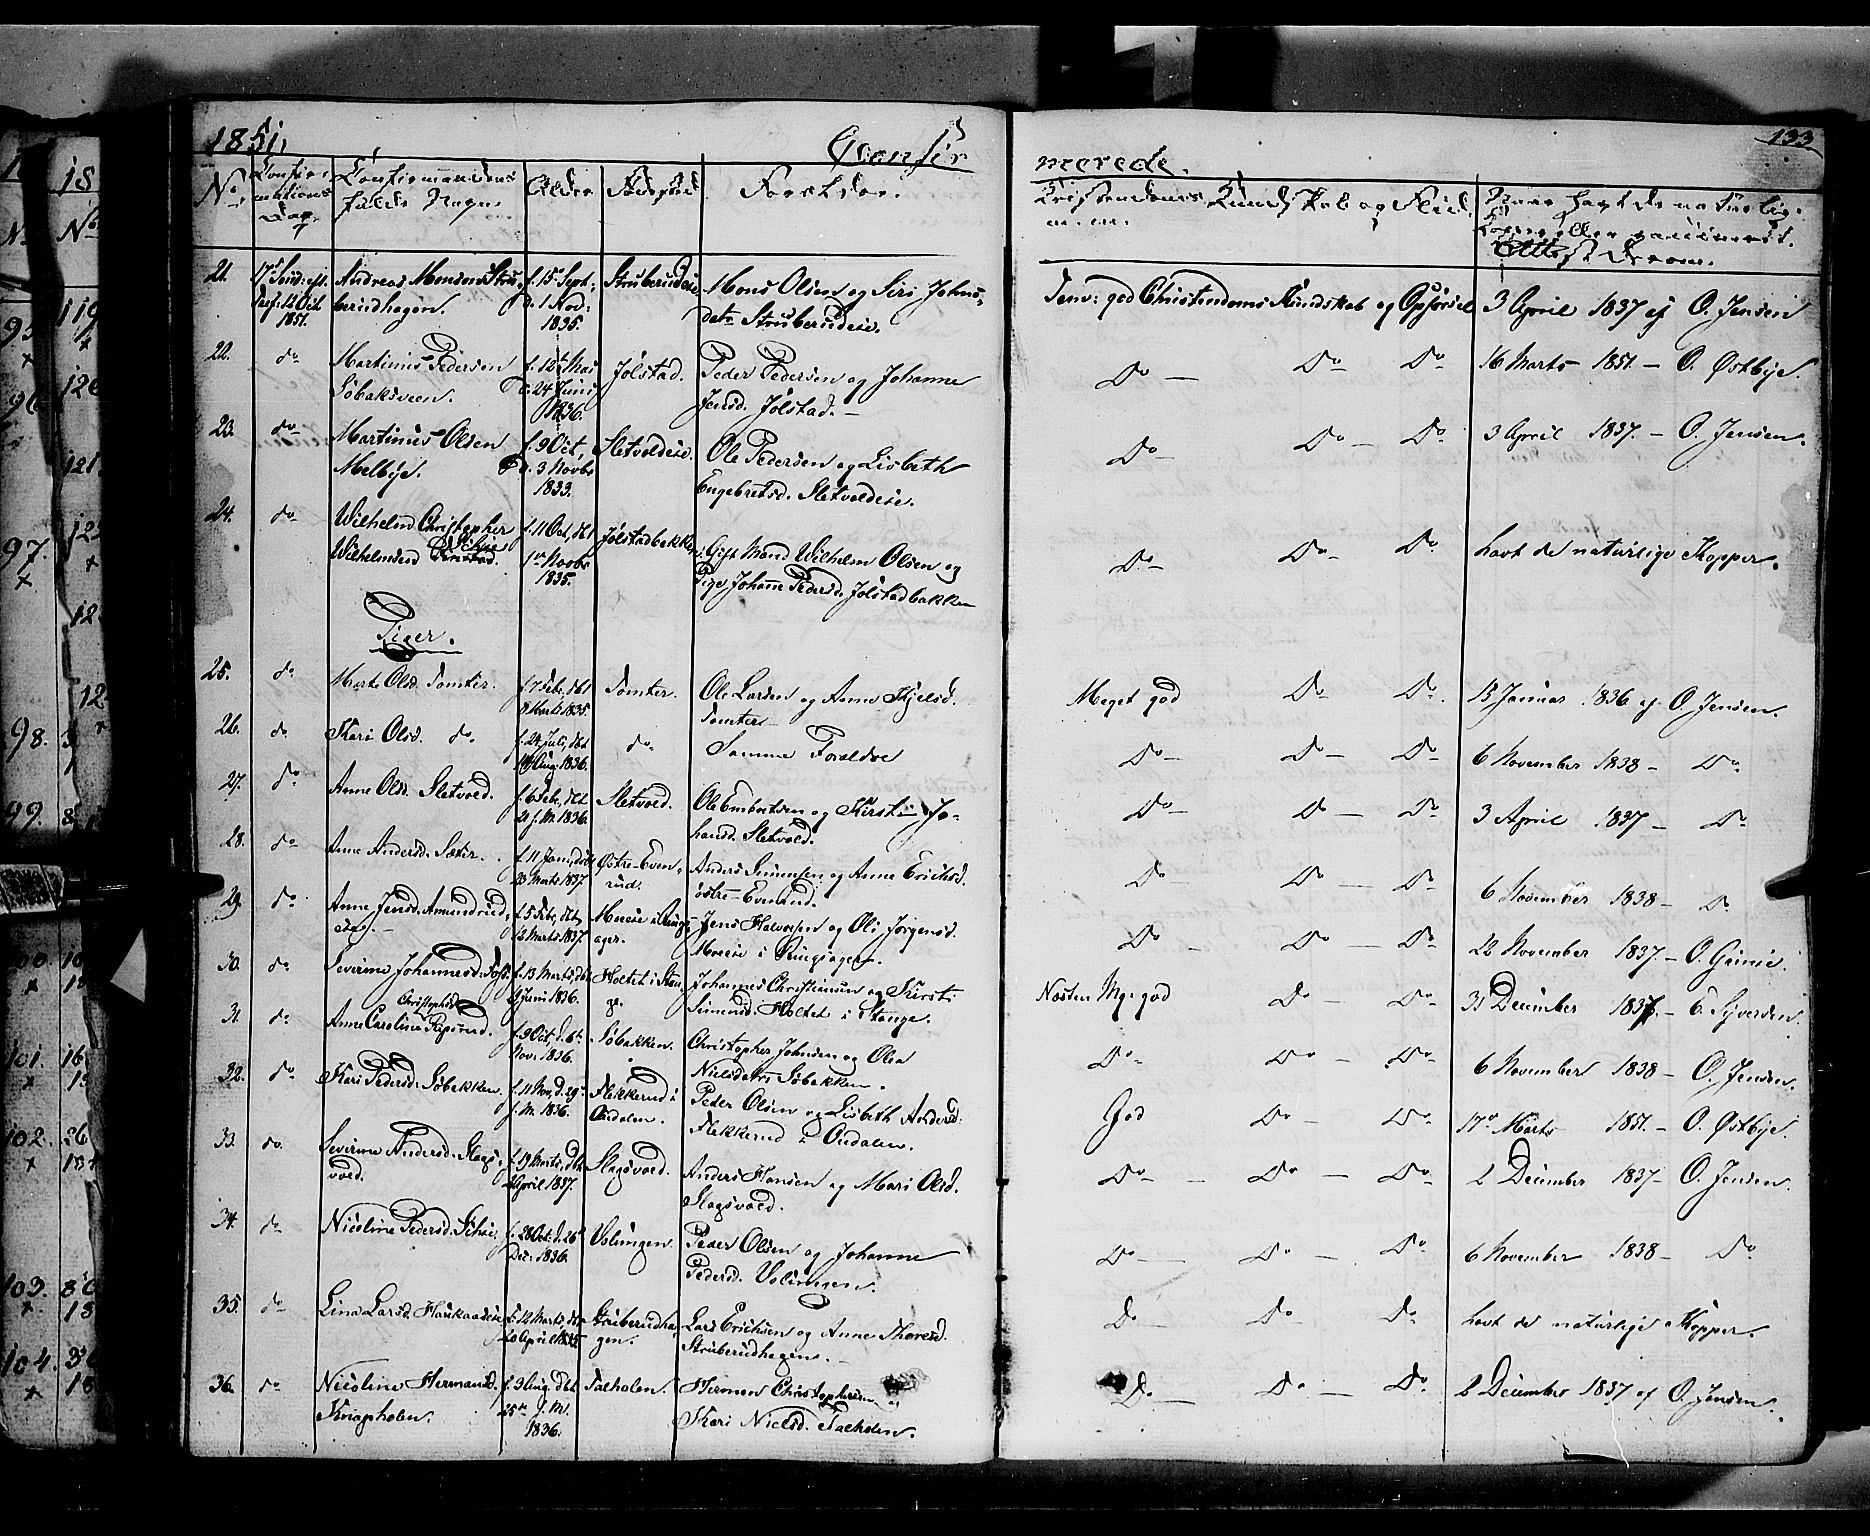 1851.
Confir
merede.
133
No
Confir-
mations
Dag
Confirmandens
fulde Navn.
Alder
Fødested
Forældre.
Kristendoms Kundskab og Flid
m. m.
Naar havt de naturlige
Kopper eller vaccineret.
Attest derom.
21.
17de Sønd: eft.
Tref. 12 Oct
1851.
Andreas Monsen Stru-
berudhagen.
f. 15 Sept.
d. 1 Nov:
1835.
Struberudeie
Mons Olsen og Siri Johns-
datr. Struberudeie.
Temm: god Christendoms Kundskab og Opførsel
3 April 1837 af O. Jensen
22.
do
Martinus Pedersen
Søbaksveen.
f. 12te Mai
d. 24 Junii
1836.
Jølstad.
Peder Pedersen og Johanne
Jensd. Jølstad.
Do — Do Do
16 Marts 1851. — O. Østbye.
23.
do
Martinus Olsen
Melbye.
f. 9 Oct,
d. 3 Novbr
1833.
Sletvoldeie.
Ole Pedersen og Lisbeth
Engebretsd. Sletvoldeie.
Do — Do — Do
3 April 1837. — O. Jensen.
24.
do
Wilhelm Christopher
Wilhelmsen
f. 11 Oct, dbt
1ste Novbr
1835.
Jølstadbakken
Gift Mand Wilhelm Olsen og
Pige Johanne Pedersd. Jølstadbakken
Do — Do — Do
havt de naturlige Kopper.
Piger.
25.
do
Marte Olsd. Tomter.
f. 7 Febr, dbt
8 Marts 1835.
Tomter.
Ole Larsen og Anne Kjelsd.
Tomter
Meget god Do Do
13 Januar 1836 af O. Jensen.
26.
do
Kari Olsd. do
f. 24 Juli, dbt
14 Aug: 1836.
do
Samme Forældre
Do — Do — Do
6 November 1838 — Do
27.
do
Anne Olsd. Sletvold.
f. 6 Febr, dbt
21 f. M. 1836.
Sletvold.
Ole Embretsen og Kirsti Jo-
hansd. Sletvold.
Do — Do — Do
3 April 1837 — Do
28.
do
Anne Andersd. Sæter.
f. 11 Jan, dbt
23 Marts 1837.
Østre-Even-
rud.
Anders Simensen og Anne Erichsd.
østre-Evenrud.
Do — Do — Do
6 November 1838 — Do
29.
do
Anne Jensd. Amundrud,
f. 5 Febr, dbt
12 Marts 1837.
Moeeie i Rings-
ager.
Jens Halvorsen og Oli Jørgensd.
Moeeie i Ringsager.
Do — Do — Do
22 November 1837. — O. Grinie.
30.
do
Severine Johannesd. Foss.
f. 13 Marts, dbt
Juni 1836.
Holtet i Stan-
ge.
Johannes Christiansen og Kirsti
Simensd. Holtet i Stange.
Næsten Mg. god Do — Do
31 December 1837. — E. Syversen.
31.
do
Christophsd.
Anne Carolina Ripsrud.
f. 9 Oct, d. 6te
Nov: 1836.
Søbakken.
Christopher Johnsen og Olea
Nielsdatr Søbakken.
Do — Do — Do
6 November 1838 — O. Jensen.
32.
do
Kari Pedersd. Søbakken.
f. 11 Nov, d. 29de
f. M. 1836.
Flekkerud i
Ourdalen.
Peder Olsen og Lisbeth Andersd.
Flekkerud i Ourdalen.
God Do — Do
17de Marts 1851. — O. Østbye.
33.
do
Severine Andersd. Slags-
vold.
f. 19 Marts, dbt
2 April 1837.
Slagsvold.
Anders Hansen og Mari Olsd.
Slagsvold.
Do — Do — Do
2 December 1837 — O. Jensen.
34.
do
Nicoline Pedersd. Schie.
f. 28 Oct. d. 26de
Dec: 1836.
Uslungen.
Peder Olsen og Johanne
Pedersd. Uslungen.
Do — Do — Do
6 November 1838 — Do
35.
do
Lina Larsd. Haukaaseie
f. 12 Marts, dbt
20 April 1835.
Struberudha-
gen.
Lars Erichsen og Anne Thoresd.
Struberudhagen.
Do — Do Do
havt de naturlige Kopper.
36.
do
Nicoline Hermansd.
Knapholen.
f. 9 Aug, dbt
25de f. M.
1836.
Taeholen.
Herman Christophersen og
Kari Nielsd. Taeholen.
Do — Do — Do
2 December 1837 af O. Jensen.